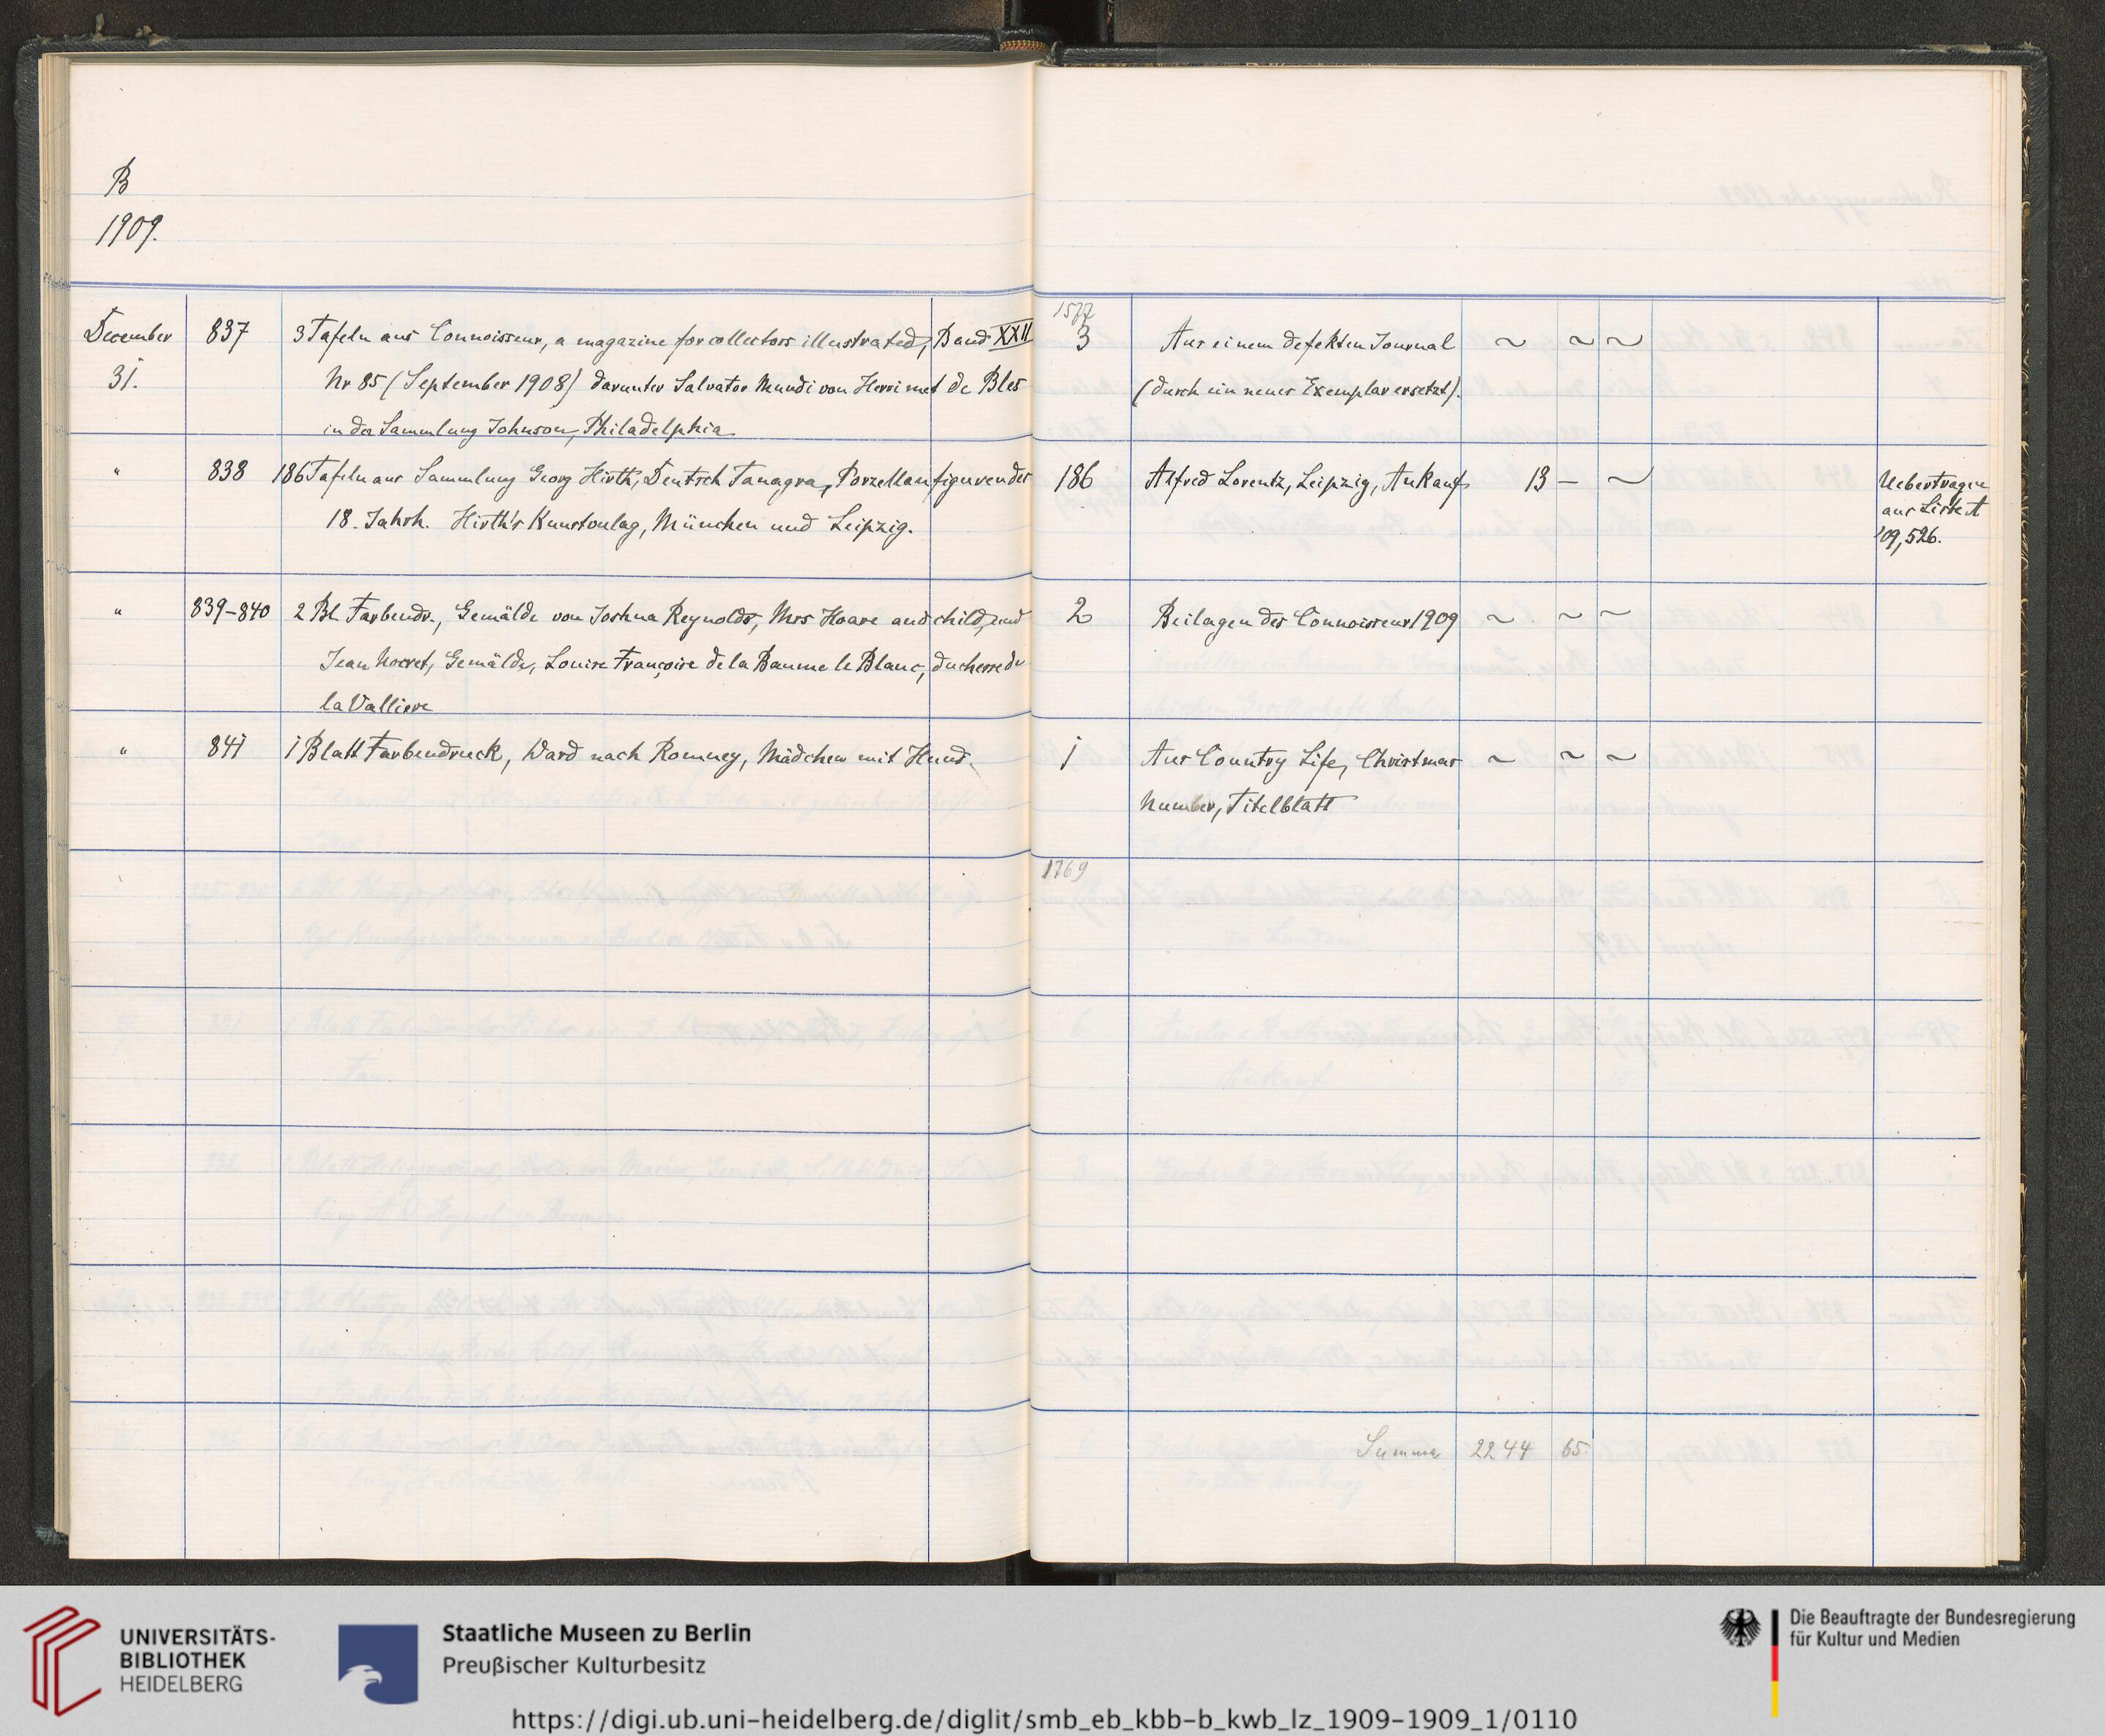 B
1909.
December 837 3 Tafeln aus Connoisseur, a magazine for collectors illustrated, Band XXII
31. Nr 85 (September 1908) darunter Salvator Mundi von Herri met de Bles
in der Sammlung Johnson, Philadelphia
" 838 186 Tafeln aus Sammlung Georg Hirth, Deutsch Tanagra, Porzellanfiguren des
18. Jahrh. Hirth's Kunstverlag, München und Leipzig.
" 839-840 2 Bl. Farbendr., Gemälde von Joshua Reynolds, Mrs Hoare and child, und
Jean Nocret, Gemälde, Louise Françoise de la Baume le Blanc, duchesse de
la Valliere
" 841 1 Blatt Farbendruck, Ward nach Romney, Mädchen mit Hund.
1577
3 Aus einem defekten Journal ~ ~ ~
(durch ein neues Exemplar ersetzt).
186 Alfred Lorentz, Leipzig, Ankauf 13 — ~ Uebertragen
aus Liste A
'09, 526.
2 Beilagen des Connoisseur 1909 ~ ~ ~
1 Aus Country Life, Christmas ~ ~ ~
Number, Titelblatt
1769
Summa 2244 65.
UNIVERSITÄTS-
BIBLIOTHEK
HEIDELBERG
Staatliche Museen zu Berlin
Preußischer Kulturbesitz
Die Beauftragte der Bundesregierung
für Kultur und Medien
https://digi.ub.uni-heidelberg.de/diglit/smb_eb_kbb-b_kwb_lz_1909-1909_1/0110